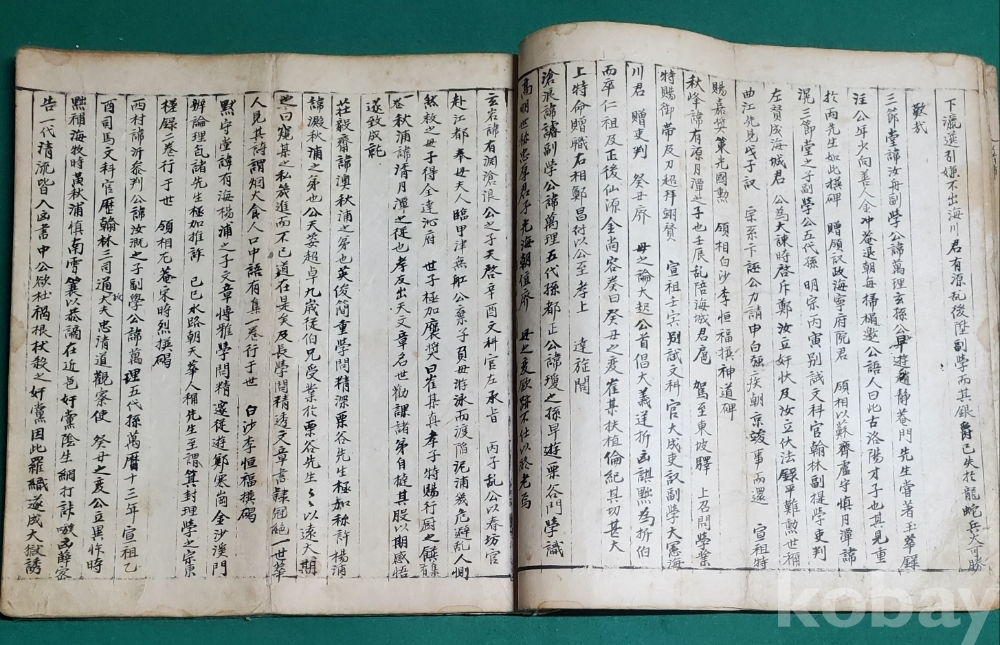 下灑選引嫌不出海川君有源乱後陞副學而其銀爵已失於龍蛇兵火可勝
歎哉
三節堂諱汝舟副學公諱萬理玄孫公早遊趙靜菴門先生嘗著玉藁録
注公年少向善人金冲菴退朝每掃榻邀公語人曰此古洛陽才子也其見重
於兩先生如此撰碑 贈領議政海寧府院君 領相以蘇齋盧守慎月潭諱
滉三節堂之子副學公五代孫 明宗丙寅別試文科官翰林副提學吏判
左賛成海城君 公為大諫時啓斥鄭汝立奸狀及汝立伏法録平難勲世稱
曲江先見戊子說 宗系卞誣公力請申白強疾朝京竣事而還 宣祖特
賜嘉奬策光國勲 領相白沙李恒福撰神道碑
秋峰諱有原月潭之子也壬辰乱陪海城君扈 駕至東坡驛 上召問學業
特賜御帶及刀超拜翊賛 宣祖壬寅別試文科 官大成吏議副學大憲海
川君 贈吏判 癸丑府 母之論大起公首倡大義逆折凶謀黜為折伯
而卒仁祖反正後仙源金尚容癸曰癸丑之変崔某扶植倫紀其功甚大
上特命贈職右相鄭昌衍以公至孝上 達旌閭
滄浪諱濬副學公諱萬理五代孫都正公諱瓊之孫早遊栗谷門學識
高明世稱忠孝君子光海朝值府 母之変歛跡不仕以終老焉
玄岩諱有泂滄浪公之子天啓辛酉文科官左承旨 丙子乱公以春坊官
赴江都奉母夫人臨甲津無舡公棄子負母游泳而渡陷泥浦幾危避乱人惻
然救之母子得全達沁府 世子極加褒奬曰崔某真孝子特賜行厨之饌
一秋浦諱清月潭之從也孝友出天文章名世勸課諸弟自掟其股以期感悟
遂致成就
莊毅齋諱澳秋浦之弟也英俊簡重學問精深栗谷先生極加称許楊浦
諱澱秋浦之弟也公天姿超卓九歲從伯兄受業於栗谷先生々以遠大期
之曰窺某之私發進而不已道在是矣及長學問精透文章書隷冠絶一世華
人見其詩謂烟火食人口中語有集一卷行于世 白沙李恒福撰碣
默守堂諱有海楊浦之子文章博雅學問精邃從遊鄭寒崗金沙溪門
辨論理氣諸先生極加推許 己巳水路朝天華人稱先生至謂箕封理學之宗東
槎録二卷行于世 領相尤菴宋時烈撰碣
西村諱沂參判公諱汝漑之子副學公諱萬理五代孫萬曆十三年 宣祖乙
酉司馬文科官歷翰林三司通大夫忠清道觀察使 癸丑之変公立異忤時
黜補海牧時黃秋浦慎南雪簑以恭謫在近邑奸黨陰生網打計
告一代清流皆入凶書中公欲杜禍根杖殺之奸黨因此羅織遂成大獄誘